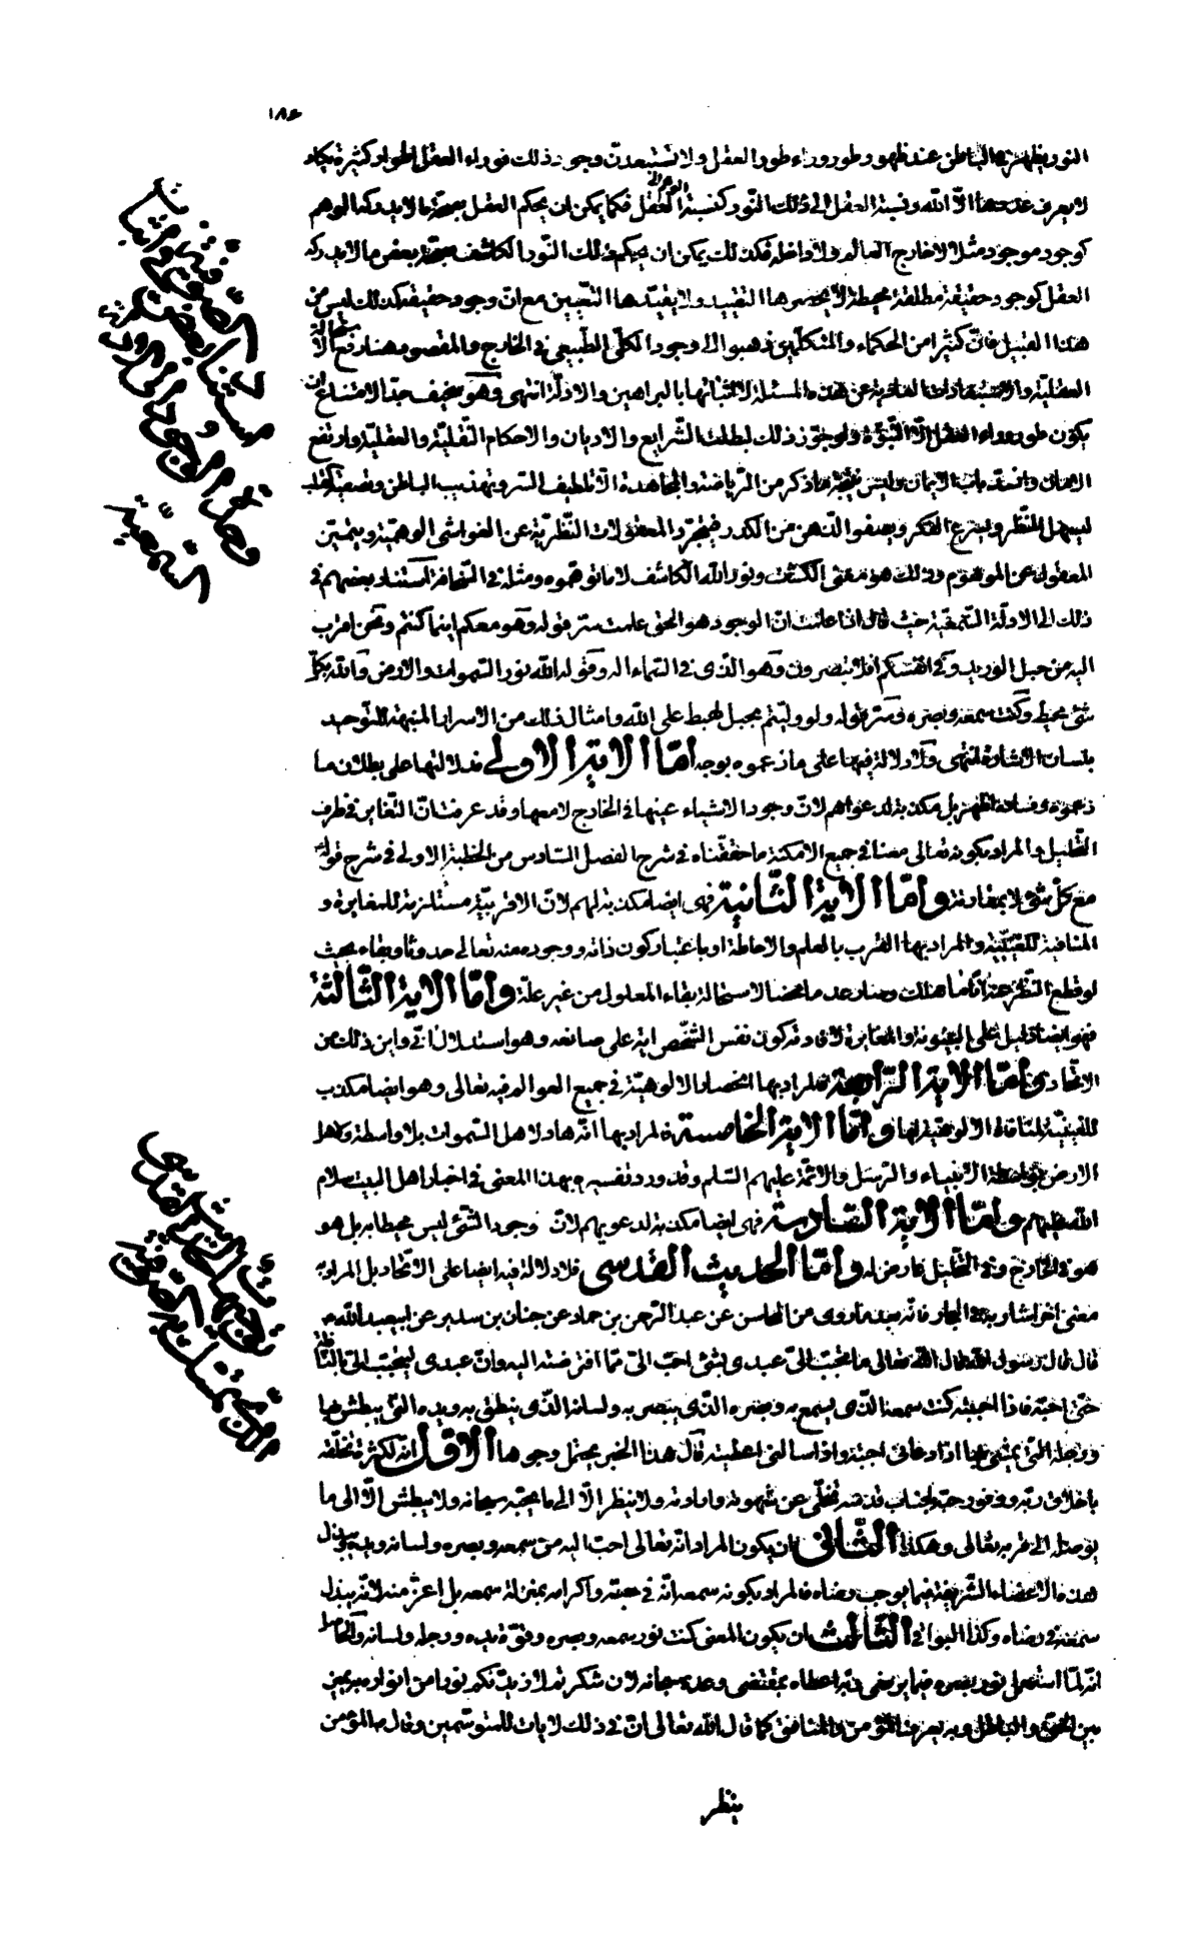 ١٨٤
النور يظهر فى الباطن عند ظهور طور وراء طور العقل ولا تستبعدنّ وجود ذلك فوراء العقل اطوار كثيرة يكاد
لا يعرف عددها الّا الله ونسبة العقل الى ذلك النّور كنسبة الوهم الى العقل فكما يمكن ان يحكم العقل بصحّة ما لا يدركه الوهم
كوجود موجود مثلا لا خارج العالم ولا داخله فكذلك يمكن ان يحكم ذلك النّور الكاشف بصحّة بعض ما لا يدركه
العقل كوجود حقيقة مطلقة محيطة لا يحصرها التقييد ولا يقيّدها التّعيين مع انّ وجود حقيقة كذلك ليس من
هذا القبيل فانّ كثيرا من الحكماء والمتكلّمين ذهبوا الى وجود الكلّى الطّبيعى فى الخارج والمقصود هنا رفع الاستحالة
العقليّة والاستبعادات العادية عن هذه المسئلة لا اثباتها بالبراهين والادلّة انتهى وهو سخيف جدّا لامتناع ان
يكون طور وراء العقل الّا النّبوّة ولو جوّز ذلك لبطلت الشّرايع والاديان والاحكام النّقليّة والعقليّة وارتفع
الامان وانسدّ باب الايمان وليس نتيجة ما ذكر من الرّياضة والمجاهدة الّا تلطيف السّر وتهذيب الباطن وتصفية القلب
ليسهل النّظر ويسرع الفكر ويصفو الذهن من الكدر فيتجرّد المعقولات النّظريّة عن الغواشى الوهميّة ويتميّز
المعقول عن الموهوم وذلك هو معنى الكشف ونور الله الكاشف لا ما توهّموه ومثله فى السّخافة استناد بعضهم فى
ذلك الى الادلّة السّمعيّة حيث قال اذا علمت انّ الوجود هو الحق علمت سرّ قوله وهو معكم اينما كنتم ونحن اقرب
اليه من حبل الوريد وفى انفسكم افلا تبصرون وهو الّذى فى السّماء اله وقوله الله نور السّموات والارض والله بكلّ
شئ محيط وكنت سمعه وبصره وسرّ قوله ولو دليتم بحبل لهبط على الله وامثال ذلك من الاسرار المنبهة للتّوحيد
بلسان الاشارة انتهى ولا دلالة فيها على ما زعموه بوجه امّا الاية الاولى فدلالتها على بطلان ما
زعموه وفساده اظهر بل مكذبة لدعواهم لانّ وجود الاشياء عينها فى الخارج لا معها وقد عرفت انّ التّغاير فى ظرف
التّحليل والمراد بكونه تعالى معنا فى جميع الامكنة ما حقّقناه فى شرح الفصل السّادس من الخطبة الاولى فى شرح قوله
مع كلّ شئ لا بمقارنة وامّا الاية الثّانية فهى ايضا مكذبة لهم لانّ الاقربيّة مستلزمة للمغايرة و
المنافية للعينيّة والمراد بها القرب بالعلم والاحاطة او باعتبار كون ذاته ووجوده منه تعالى حدوثا وبقاء بحيث
لو قطع النّظر عنه انا ما هلك وصار عدما محضا لاستحالة بقاء المعلول من غير علّة وامّا الاية الثّالثة
فهو ايضا دليل على البينونة والمغايرة لافادته كون نفس الشّخص اية على صانعه وهو استدلال انّى واين ذلك من
الاتّحاد وامّا الاية الرّابعة فالمراد بها انحصار الالوهيّة فى جميع العوالم فيه تعالى وهو ايضا مكذب
للعينيّة لمنافاة الالوهيّة لها وامّا الاية الخامسة فالمراد بها انّه هاد لاهل السّموات بلا واسطة ولاهل
الارض بواسطة الانبياء والرّسل والائمّة عليهم السّلم وقد ورد تفسيره بهذا المعنى فى اخبار اهل البيت سلام
الله عليهم وامّا الاية السّادسة فهى ايضا مكذبة لدعويهم لانّ وجود الشّئ ليس محيطا به بل هو
هو فى الخارج وفى التّحليل عارض له وامّا الحديث القدسى فلا دلالة فيه ايضا على الاتّحاد بل المراد به
معنى اخر اشار اليه فى البحار فانّه بعد ما روى من المحاسن عن عبد الرّحمن بن حماد عن حنان بن سدير عن ابيعبد الله ع
قال قال رسول الله قال الله تعالى ما تحبّب الىّ عبدى بشئ احبّ الىّ ممّا افترضته اليه وانّ عبدى ليتحبّب الىّ بالنّافلة
حتّى احبّه فاذا احببته كنت سمعه الّذى يسمع به وبصره الّذى يبصر به ولسانه الّذى ينطق به ويده الّتى يبطش بها
ورجله الّتى يمشى بها اذا دعانى اجبته واذا سالنى اعطيته قال هذا الخبر يحتمل وجوها الاوّل انّه لكثرة تخلّقه
باخلاق ربّه ووفور حبّه لجناب قدسه تخلّى عن شهوته وارادته ولا ينظر الّا الى ما يحبّه سبحانه ولا يبطش الّا الى ما
يوصله الى قربه تعالى وهكذا الثّانى ان يكون المراد انّه تعالى احبّ اليه من سمعه وبصره ولسانه ويده ويبذل
هذه الاعضاء الشّريفة فيما يوجب رضاه فالمراد بكونه سمعه انّه فى حبّه واكرامه بمنزلة سمعه بل اعزّ منه لانّه يبذل
سمعه فى رضاه وكذا البواقى الثّالث ان يكون المعنى كنت نور سمعه وبصره وقوّة يده ورجله ولسانه والحاصل
انّه لمّا استعمل نور بصره فيما يرضى ربّه اعطاه بمقتضى وعده سبحانه لان شكرتم لازيدنّكم نورا من انواره به يميز
بين الحق والباطل وبه يعرف المؤمن والمنافق كما قال الله تعالى انّ فى ذلك لايات للمتوسّمين وقال ص المؤمن
ينظر